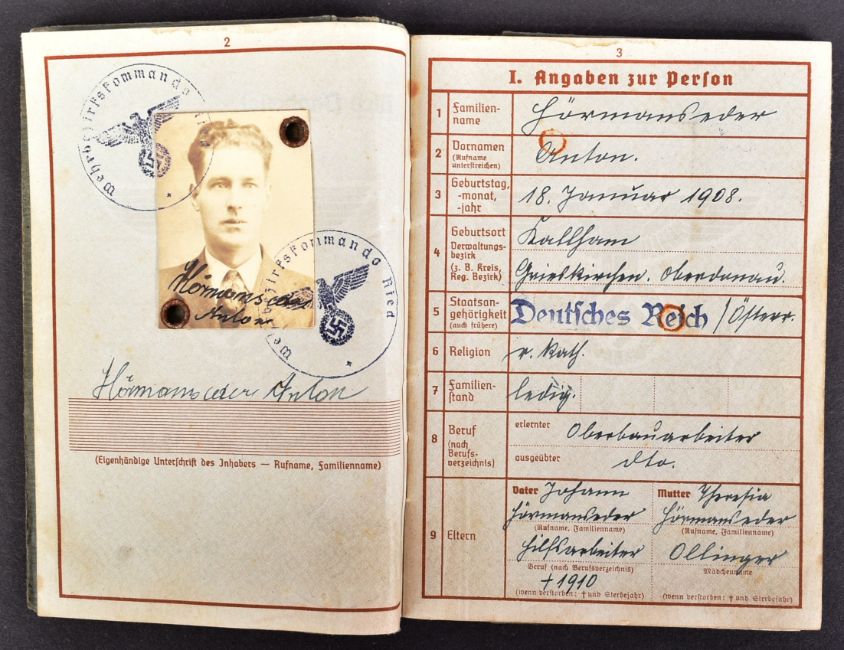 2
Wehrbezirkskommando Ried
Hörmanseder
Anton
Wehrbezirkskommando Ried
Hörmanseder Anton
(Eigenhändige Unterschrift des Inhabers — Rufname, Familienname)
3
I. Angaben zur Person
1 Familien-
name
Hörmanseder
2 Vornamen
(Rufname
unterstreichen)
Anton.
3 Geburtstag,
-monat,
-jahr
18. Januar 1908.
4 Geburtsort
Verwaltungs-
bezirk
(z. B. Kreis,
Reg. Bezirk)
Kallham
Grieskirchen. Oberdonau.
5 Staatsan-
gehörigkeit
(auch frühere)
Deutsches Reich / Österr.
6 Religion
r. kath.
7 Familien-
stand
ledig.
8 Beruf
(nach
Berufs-
verzeichnis)
erlernter Oberbauarbeiter
ausgeübter dto.
9 Eltern
Vater Johann
Hörmanseder
(Rufname, Familienname)
Hilfsarbeiter
Beruf (nach Berufsverzeichnis)
+ 1910
(wenn verstorben: † und Sterbejahr)
Mutter Theresia
Hörmanseder
(Rufname, Familienname)
Ollinger
Mädchenname
(wenn verstorben: † und Sterbejahr)